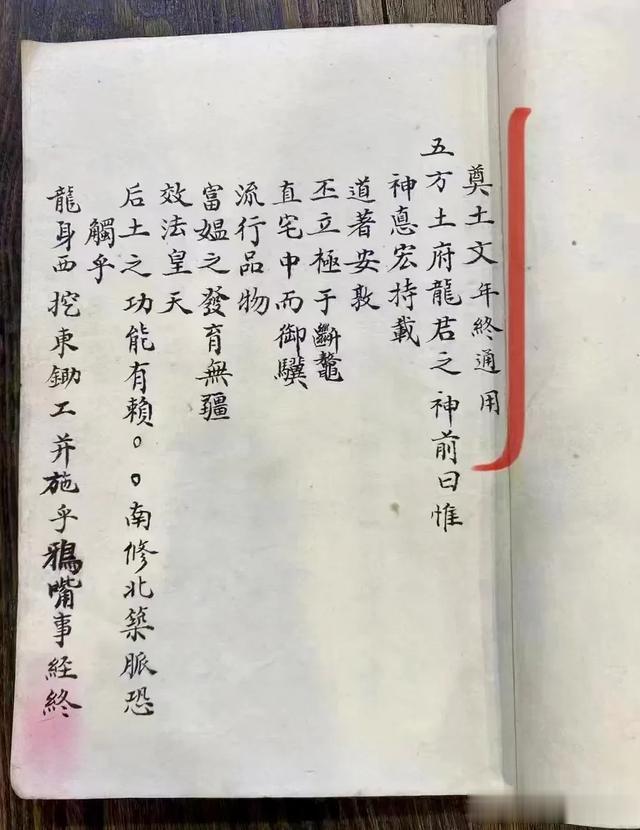 奠土文年終通用
五方土府龍君之神前曰惟
神惪宏持載
道著安敦
丕立極于斷鼇
直宅中而御驥
流行品物
富媼之發育無疆
效法皇天
后土之功能有賴。。南修北築脈恐
觸乎
龍身西挖東鋤工并施乎鴉嘴事經終